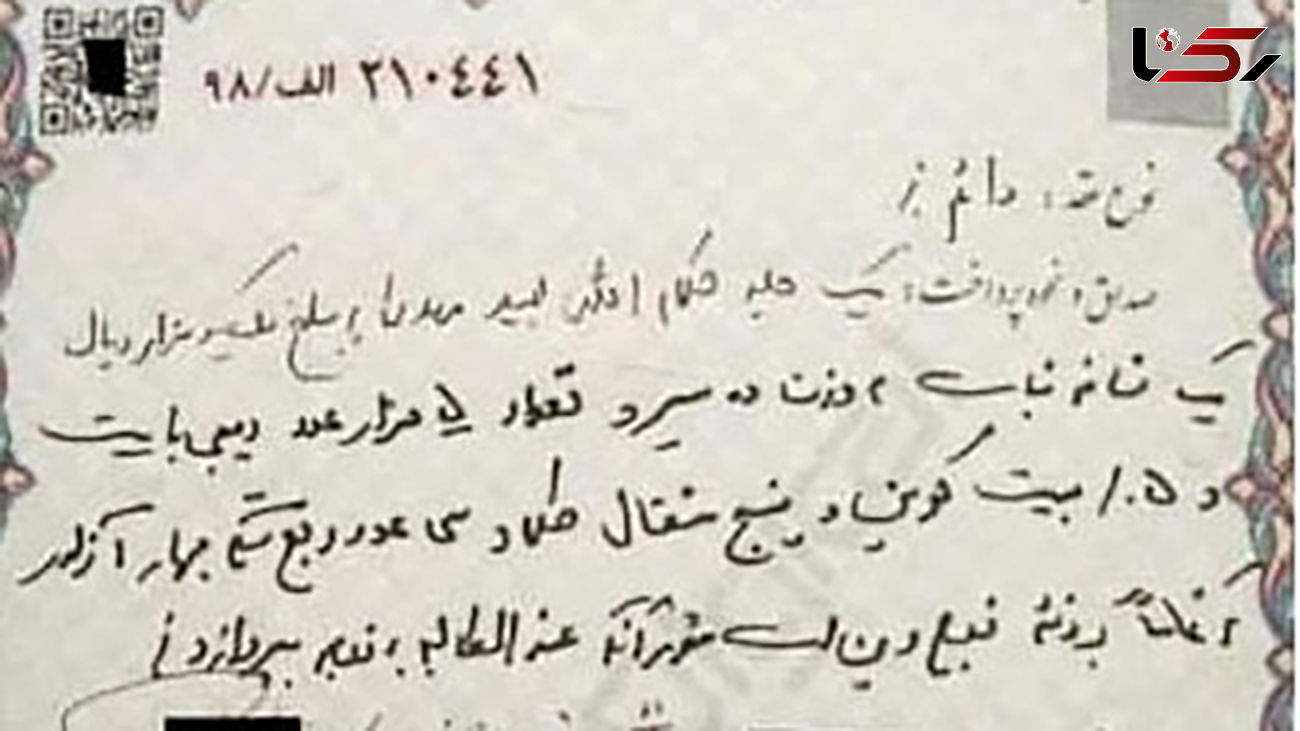 رکنا
۲۱۰٤٤۱ الف/۹۸
نوع عقد: دائم
صداق و نحوه پرداخت: یک جلد کلام الله مجید مهریه به مبلغ یکصد هزار ریال
یک شاخه نبات به وزن ده سیر و تعداد ۵ هزار عدد دیجی بایت
و ۰.۵ بیت کوین و پنج مثقال طلا و سی عدد ربع سکه بهار آزادی
که تماماً بر ذمه زوج دین است عند المطالبه به زوجه بپردازد